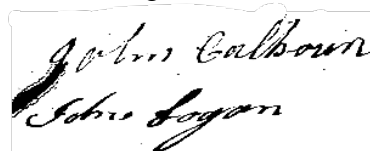 John Calhoun
John Logan